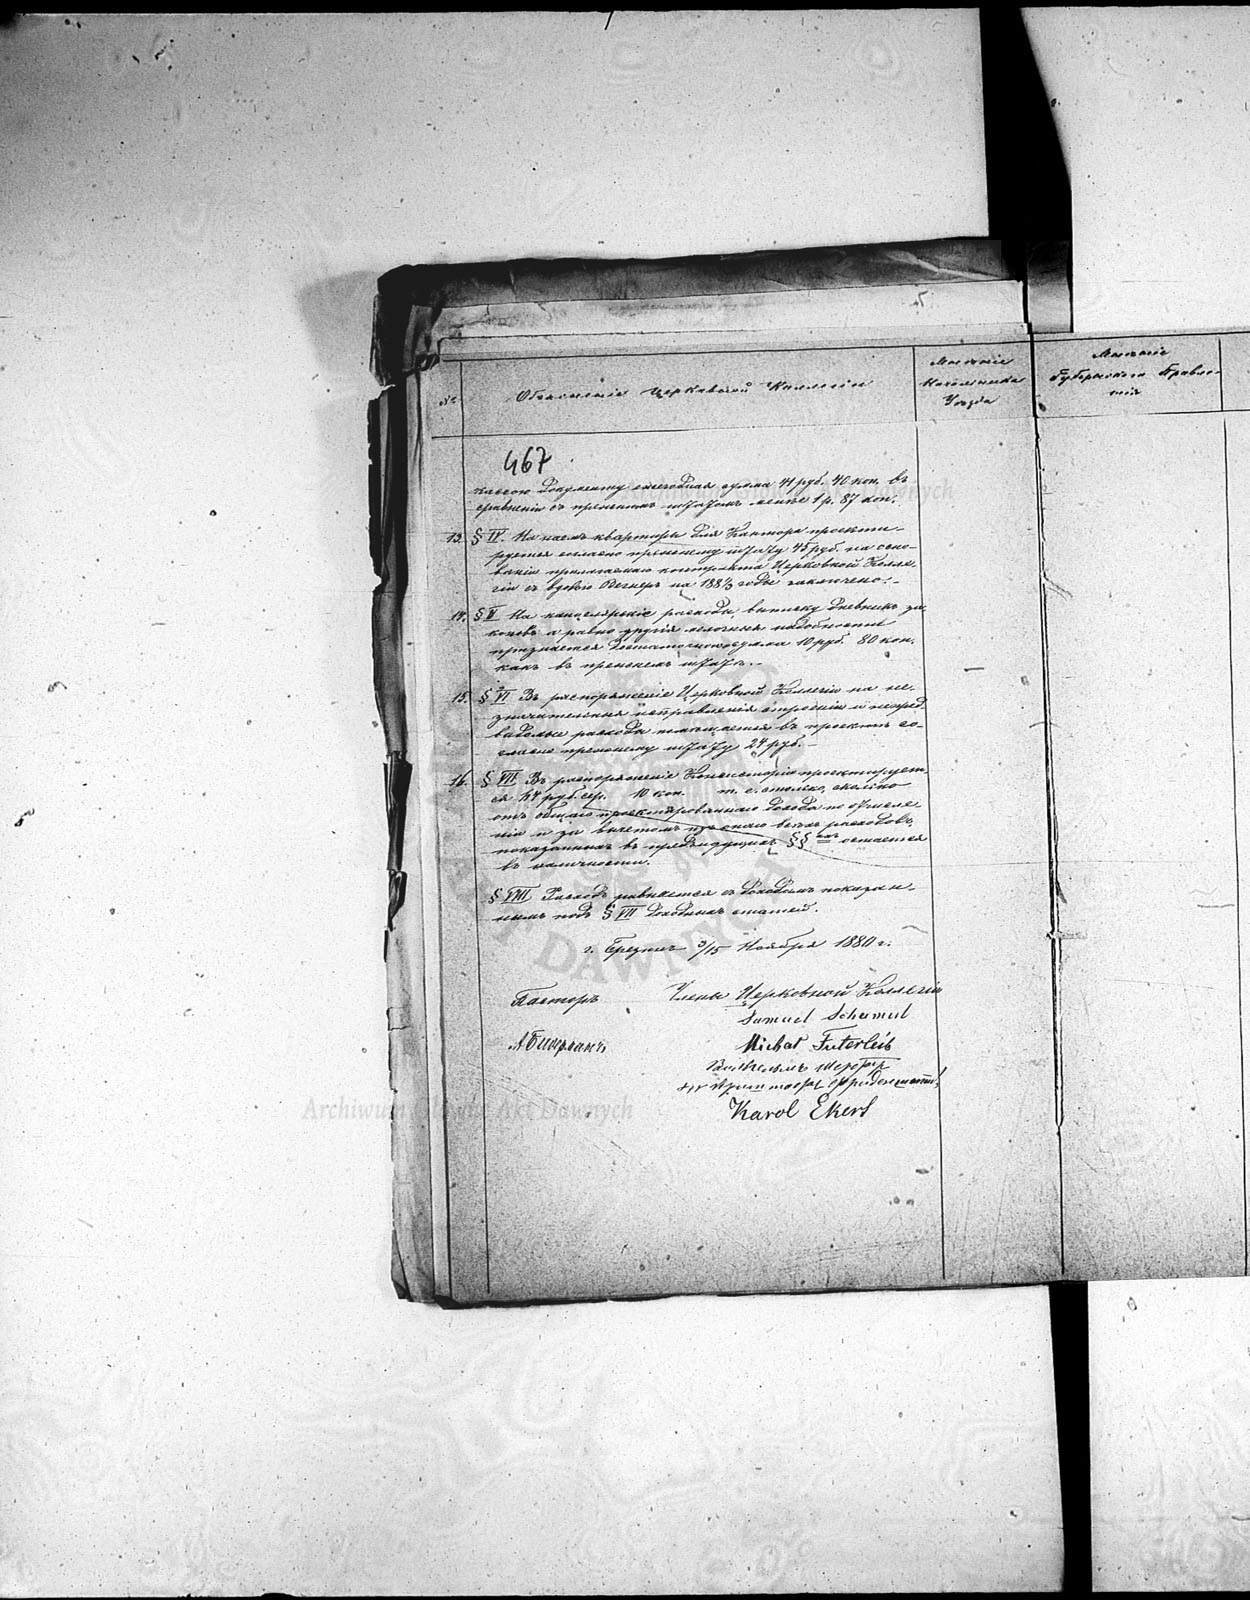 №
Объясненіе Церковной Коллегіи
Мнѣніе
Начальника
Уѣзда
Мнѣніе
Губернскаго Правле-
нія
467
документу ежегодная сумма 41 руб. 40 коп. въ
сравненіи съ прежнимъ штатомъ менѣе 1 р. 87 коп.
13. § IV. На наемъ квартиры для Кантора проекти-
руется согласно прежнему штату 45 руб. на осно-
ваніи прилагаемаго контракта Церковной Колле-
гіи съ вдовою Вегнеръ на 188⅓ годы заключено.-
14. § V На канцелярскіе расходы, выписку Дневника за
коновъ а равно другія мелочныя надобности
признается достаточною сумма 10 руб. 80 коп.
какъ въ прежнемъ штатѣ.-
15. § VI Въ распоряженіе Церковной Коллегіи на не-
значительныя исправленія строеній и непред
видимые расходы помѣщается въ проектѣ со-
гласно прежнему штату 24 руб.-
16. § VII. Въ распоряженіе Консисторіи проектирует-
ся руб. сер. 10 коп. т. е. столько, сколько
отъ общаго проектированнаго дохода по
и за вычетомъ всѣхъ расходовъ,
показанныхъ въ предъидущихъ §§ахъ остается
въ наличности.
§ VIII Расходъ равняется съ доходомъ показан-
нымъ подъ § VIII Доходныхъ статей.
г. Брезины 3/15 Ноября 1880 г.
Пасторъ Члены Церковной Коллегіи
Samuel Schamul
Michał Futerleib
Вильгельмъ
Karol Ekert
Archiwum Główne Akt Dawnych
Archiwum Główne Akt Dawnych
AKT DAWNYCH